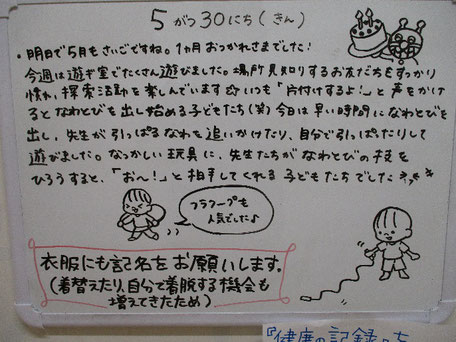 5がつ30にち(きん)
・明日で5月もさいごですね。1ヵ月おつかれさまでした!
今週は遊ぎ室でたくさん遊びました。場所見知りするお友だちもすっかり
慣れ、探索活動を楽しんでいます☆いつも「片付けするよ!」と声をかけ
るとなわとびを出し始める子どもたち(笑)今日は早い時間になわとびを
出し、先生が引っぱるなわを追いかけたり、自分で引っぱったりして
遊びました。なつかしい玩具に、先生たちがなわとびの技を
ひろうすると、「お〜!」と拍手してくれる子どもたちでした
フラフープも
人気でした♪
衣服にも記名をお願いします。
(着替えたり、自分で着脱する機会も
増えてきたため)
『健康の記録』